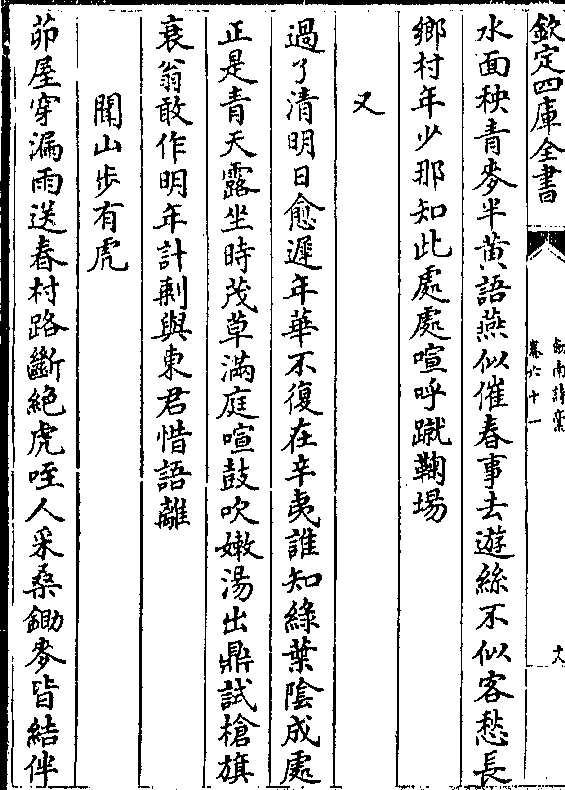 欽定四庫全書
劍南詩槀
卷六十一
水面秧青麥半黄語燕似催春事去遊絲不似客愁長
鄉村年少那知此處處喧呼蹴鞠場
又
過了清明日愈遲年華不復在辛夷誰知綠葉陰成處
正是青天露坐時茂草滿庭喧鼓吹嫩湯出鼎試槍旗
衰翁敢作明年計剰與東君惜語離
聞山步有虎
茆屋穿漏雨送春村路斷絶虎咥人采桑鋤麥皆結伴